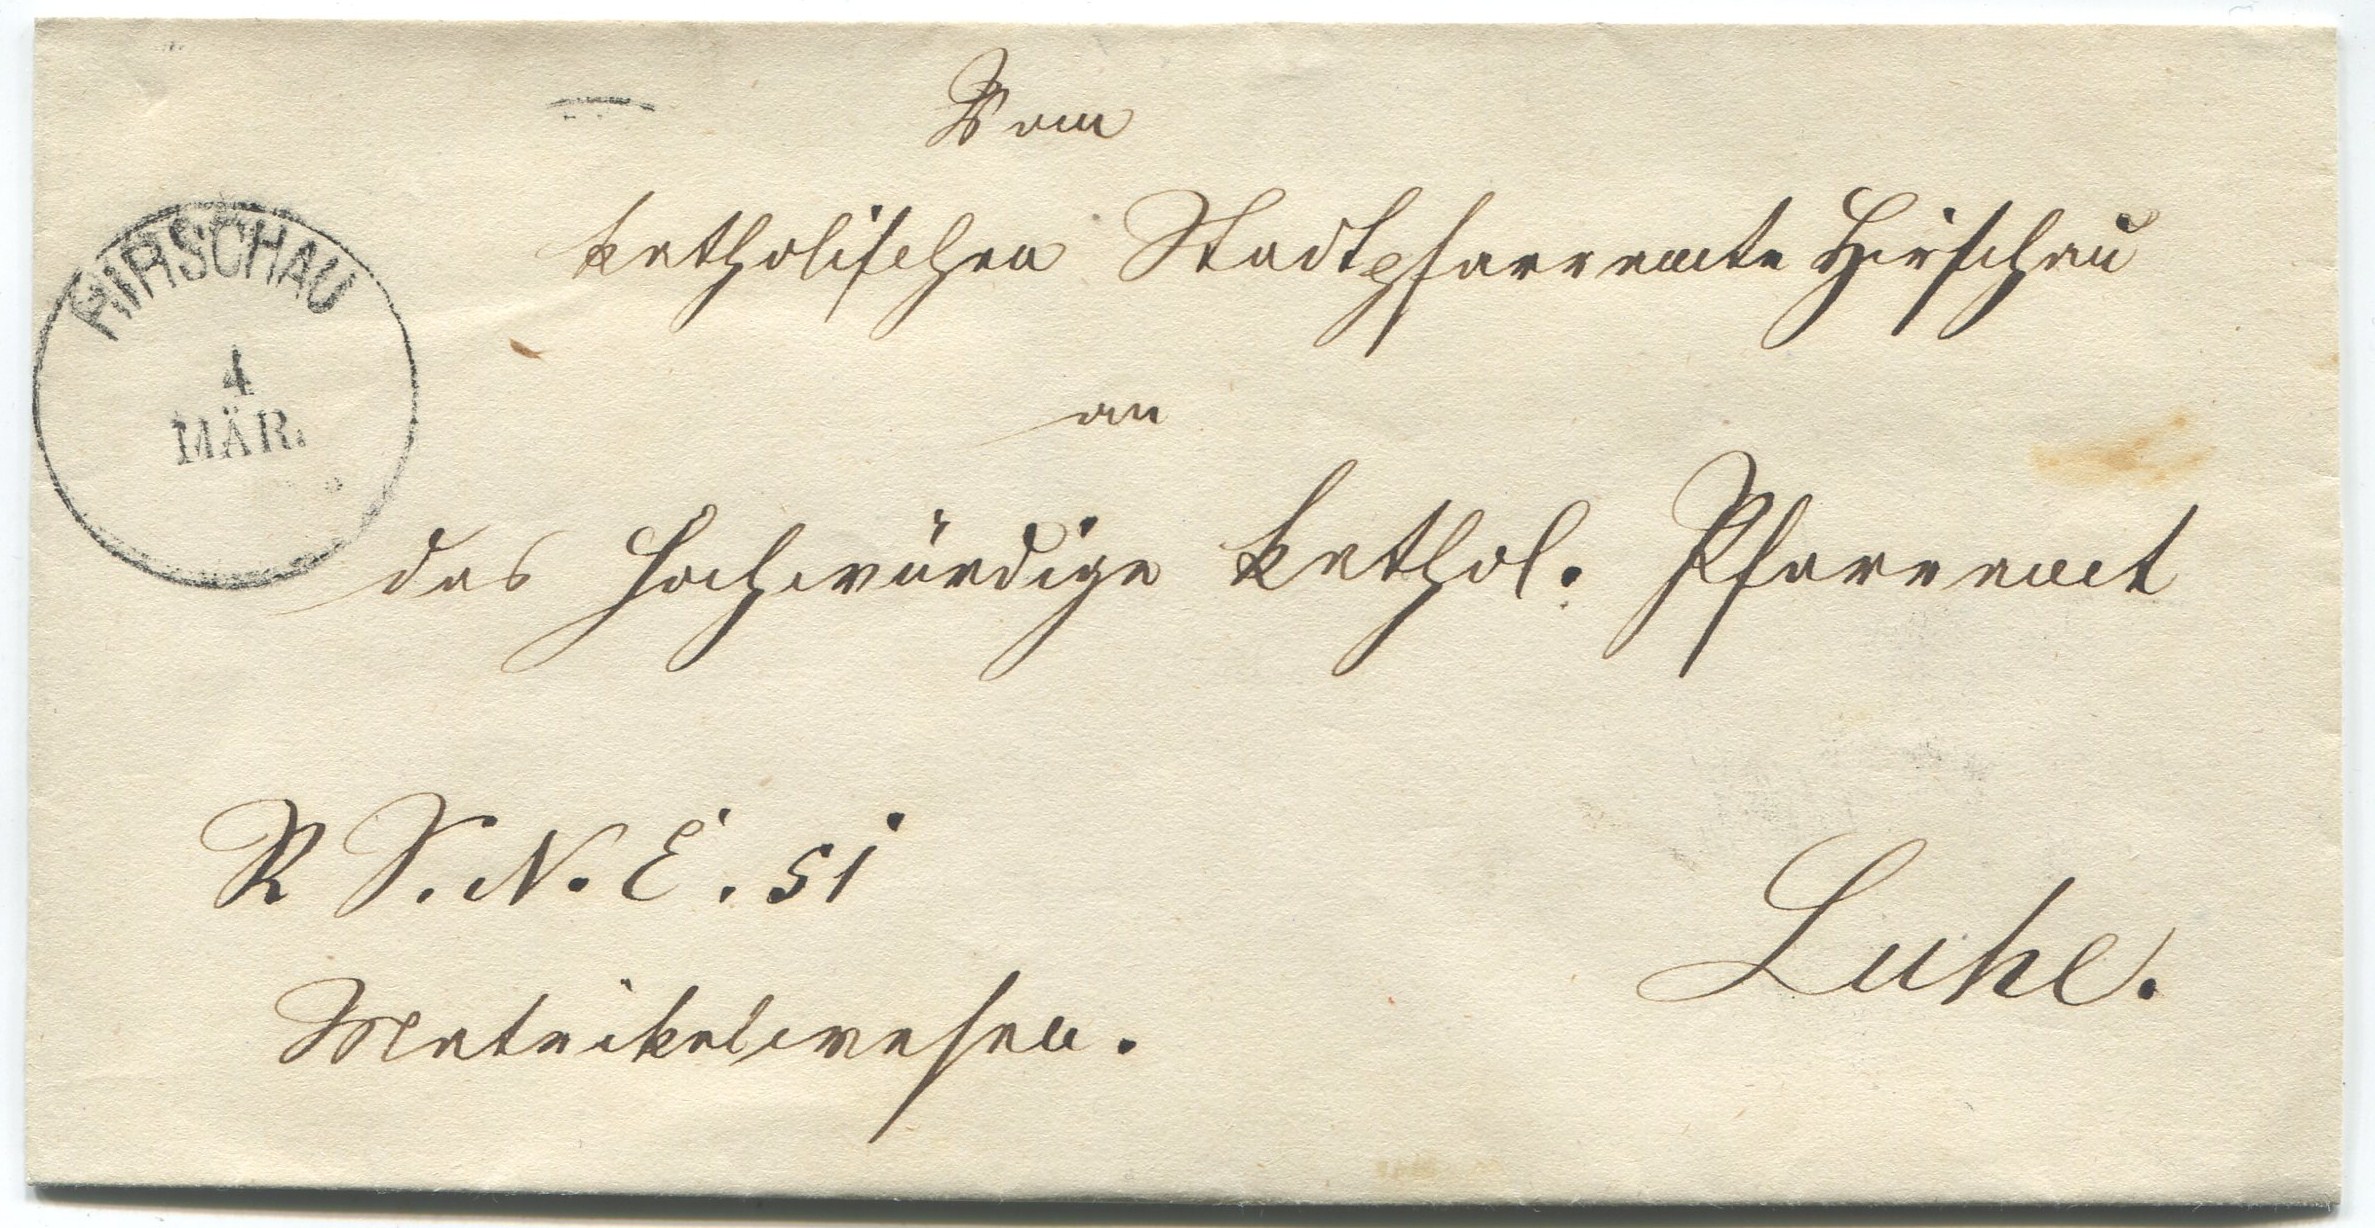 Vom
katholischen Stadtpfarramte Hirschau
an
das hochwürdige kathol. Pfarramt
R. S. N. E. 51
Luhe.
Matrikelwesen.
HIRSCHAU
4
MÄR.